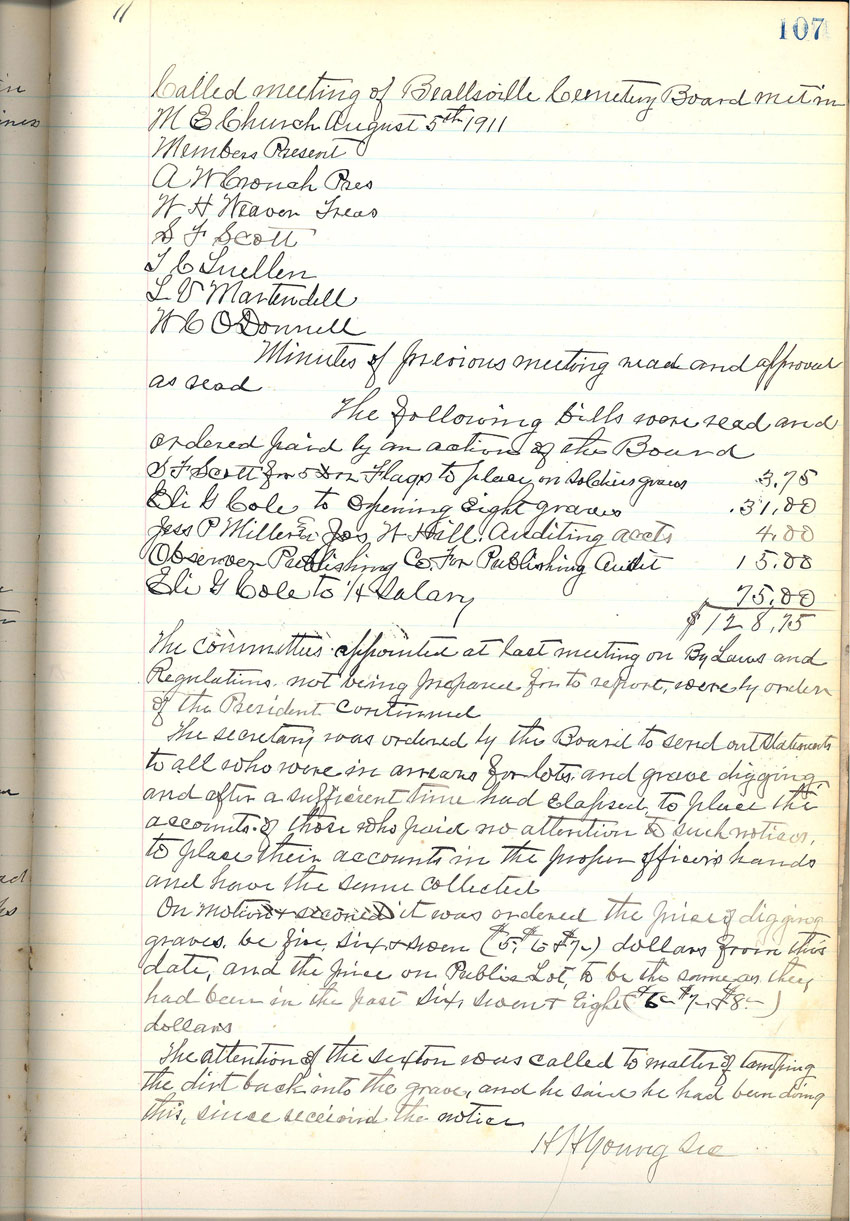 11
107
Called meeting of Beallsville Cemetery Board met in
M E Church August 5th 1911
Members Present
A W Crouch Pres
W H Weaver Treas
S F Scott
T C Luellen
L V Martindell
W C O'Donnell
Minutes of previous meeting read and approved
as read
The following bills were read and
ordered paid by an action of the Board
S F Scott for 5 Doz Flags to place on soldiers graves 3.75
Eli G Cole to opening Eight graves 31.00
Jess P Miller & Jos W Hill. Auditing accts 4.00
Observer Publishing Co. For Publishing Audit 15.00
Eli G Cole to 1/4 Salary 75.00
$128.75
The committee appointed at last meeting on By Laws and
Regulations. not being prepared for to report, were by order
of the President continued
The secretary was ordered by the Board to send out statements
to all who were in arrears for lots. and grave digging,
and after a sufficient time had elapsed, to place the
accounts of those who paid no attention to such notices,
to place their accounts in the proper officers hands
and have the same collected
On motion & seconed it was ordered the price of digging
graves. be five, six & seven ($5. to $7-) dollars from this
date, and the price on Public Lot, to be the same as they
had been in the past six, seven & Eight ($6- $7- & $8-)
dollars
The attention of the sexton was called to matter of tamping
the dirt back into the grave, and he said he had been doing
this, since receivind the notice
H H Young Sec